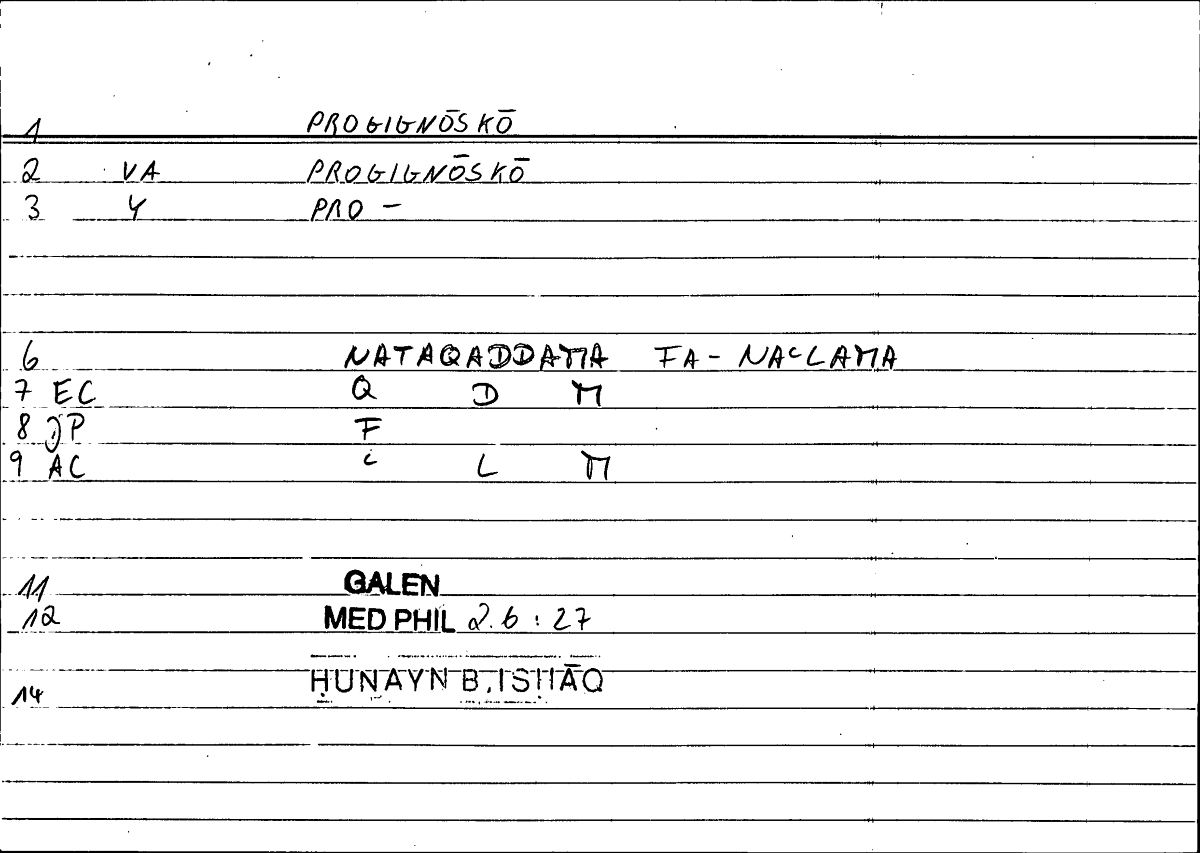 1 PROGIGNŌSKŌ
2 VA PROGIGNŌSKŌ
3 Y PRO –
6 NATAQADDAMA FA – NAʿLAMA
7 EC Q D M
8 JP F
9 AC ʿ L M
11 GALEN
12 MED PHIL 2.6 : 27
14 ḤUNAYN B. ISḤĀQ